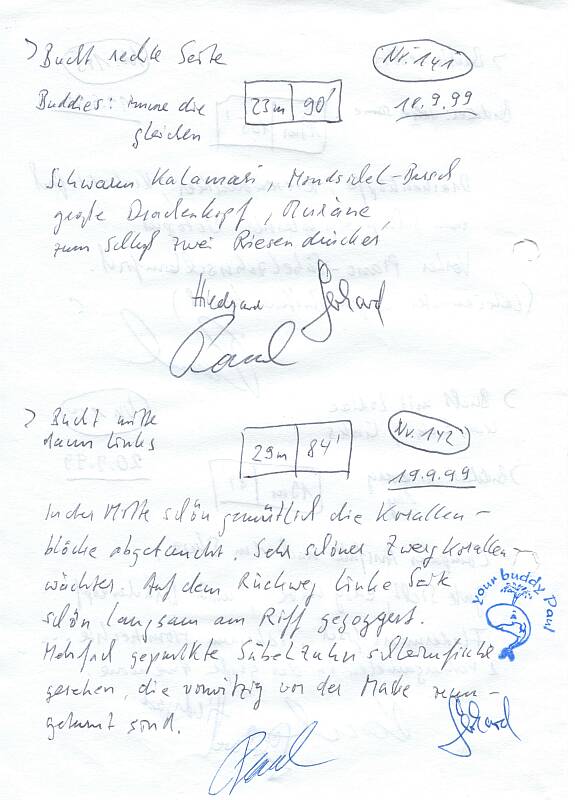 > Bucht rechte Seite
Nr. 141
Buddies: immer die
gleichen
23m 90'
18.9.99
Schwarm Kalamari, Mondsichel-Busch
große Drachenkopf, Muräne,
zum Schluß zwei Riesendrücker
Hildegard Gerhard
Paul
> Bucht mitte
dann links
29m 84'
Nr. 142
19.9.99
In der Mitte schön gemütlich die Korallen-
blöcke abgetaucht. Sehr schöner Zwergkorallen-
wächter. Auf dem Rückweg linke Seite
schön langsam am Riff gezoggert.
Mehrfach gepunktete Säbelzahnschleimfische
gesehen, die vorwitzig vor der Maske rum-
geturnt sind.
your buddy Paul
Gerhard
Paul